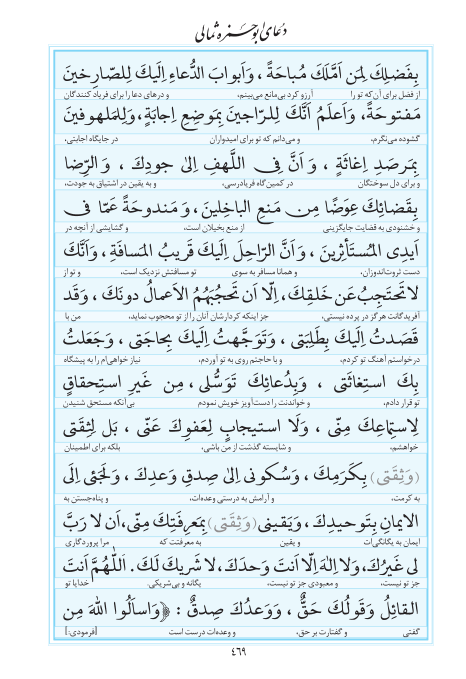 دعای ابوحمزه ثمالی
بِفَضلِكَ لِمَن اَمَّلَكَ مُباحَةً ، وَاَبوابَ الدُّعاءِ اِلَيكَ لِلصّارِخينَ
از فضل برای آن‌که تو را آرزو کرد بی‌مانع می‌بینم، و درهای دعا را برای فریاد کنندگان
مَفتوحَةً، وَاَعلَمُ اَنَّكَ لِلرّاجينَ بِمَوضِعِ اِجابَةٍ، وَلِلمَلهوفينَ
گشوده می‌نگرم، و می‌دانم که تو برای امیدواران در جایگاه اجابتی،
بِمَرصَدِ اِغاثَةٍ ، وَ اَنَّ فِی اللَّهفِ اِلىٰ جودِكَ ، وَ الرِّضا
و برای دل سوختگان در کمین‌گاه فریادرسی، و به یقین در اشتیاق به جودت،
بِقَضائِكَ عِوَضًا مِن مَنعِ الباخِلينَ، وَ مَندوحَةً عَمّا فی
و خشنودی به قضایت جایگزینی از منع بخیلان است، و گشایشی از آنچه در
اَيدِی المُستَأثِرينَ ، وَاَنَّ الرّاحِلَ اِلَيكَ قَريبُ المَسافَةِ، وَاَنَّكَ
دست ثروت‌اندوزان، و همانا مسافر به سوی تو مسافتش نزدیک است، و تو از
لا تَحتَجِبُ عَن خَلقِكَ، اِلّا اَن تَحجُبَهُمُ الاَعمالُ دونَكَ ، وَقَد
آفریدگانت هرگز در پرده نیستی، جز اینکه کردارشان آنان را از تو محجوب نماید، من با
قَصَدتُ اِلَيكَ بِطَلِبَتی ، وَتَوَجَّهتُ اِلَيكَ بِحاجَتی ، وَجَعَلتُ
درخواستم آهنگ تو کردم، و با حاجتم روی به تو آوردم، نیاز خواهی‌ام را به پیشگاه
بِكَ استِغاثَتی ، وَبِدُعائِكَ تَوَسُّلی، مِن غَيرِ استِحقاقٍ
تو قرار دادم، و خواندنت را دست‌آویز خویش نمودم بی‌آنکه مستحق شنیدن
لِاستِماعِكَ مِنّی ، وَلَا استيجابٍ لِعَفوِكَ عَنّی ، بَل لِثِقَتی
خواهشم، و شایسته گذشت از من باشی، بلکه برای اطمینان
(وَثِقَتی) بِكَرَمِكَ ، وَسُكونی اِلىٰ صِدقِ وَعدِكَ ، وَلَجَئی اِلَى
به کرمت، و آرامش به درستی وعده‌ات، و پناه‌جستن به
الايمانِ بِتَوحيدِكَ ، وَيَقينی (وَثِقَتی) بِمَعرِفَتِكَ مِنّی، اَن لا رَبَّ
ایمان به یگانگی‌ات و یقین به معرفتت که مرا پروردگاری
لی غَيرُكَ، وَلا اِلٰهَ اِلّا اَنتَ وَحدَكَ، لا شَريكَ لَكَ. اَللّٰهُمَّ اَنتَ
جز تو نیست، و معبودی جز تو نیست، یگانه و بی‌شریکی. خدایا تو
القائِلُ وَقَولُكَ حَقٌّ ، وَوَعدُكَ صِدقٌ : ﴿وَاسأَلُوا اللهَ مِن
گفتی و گفتارت بر حق، و وعده‌ات درست است [فرمودی:]
٤٦٩